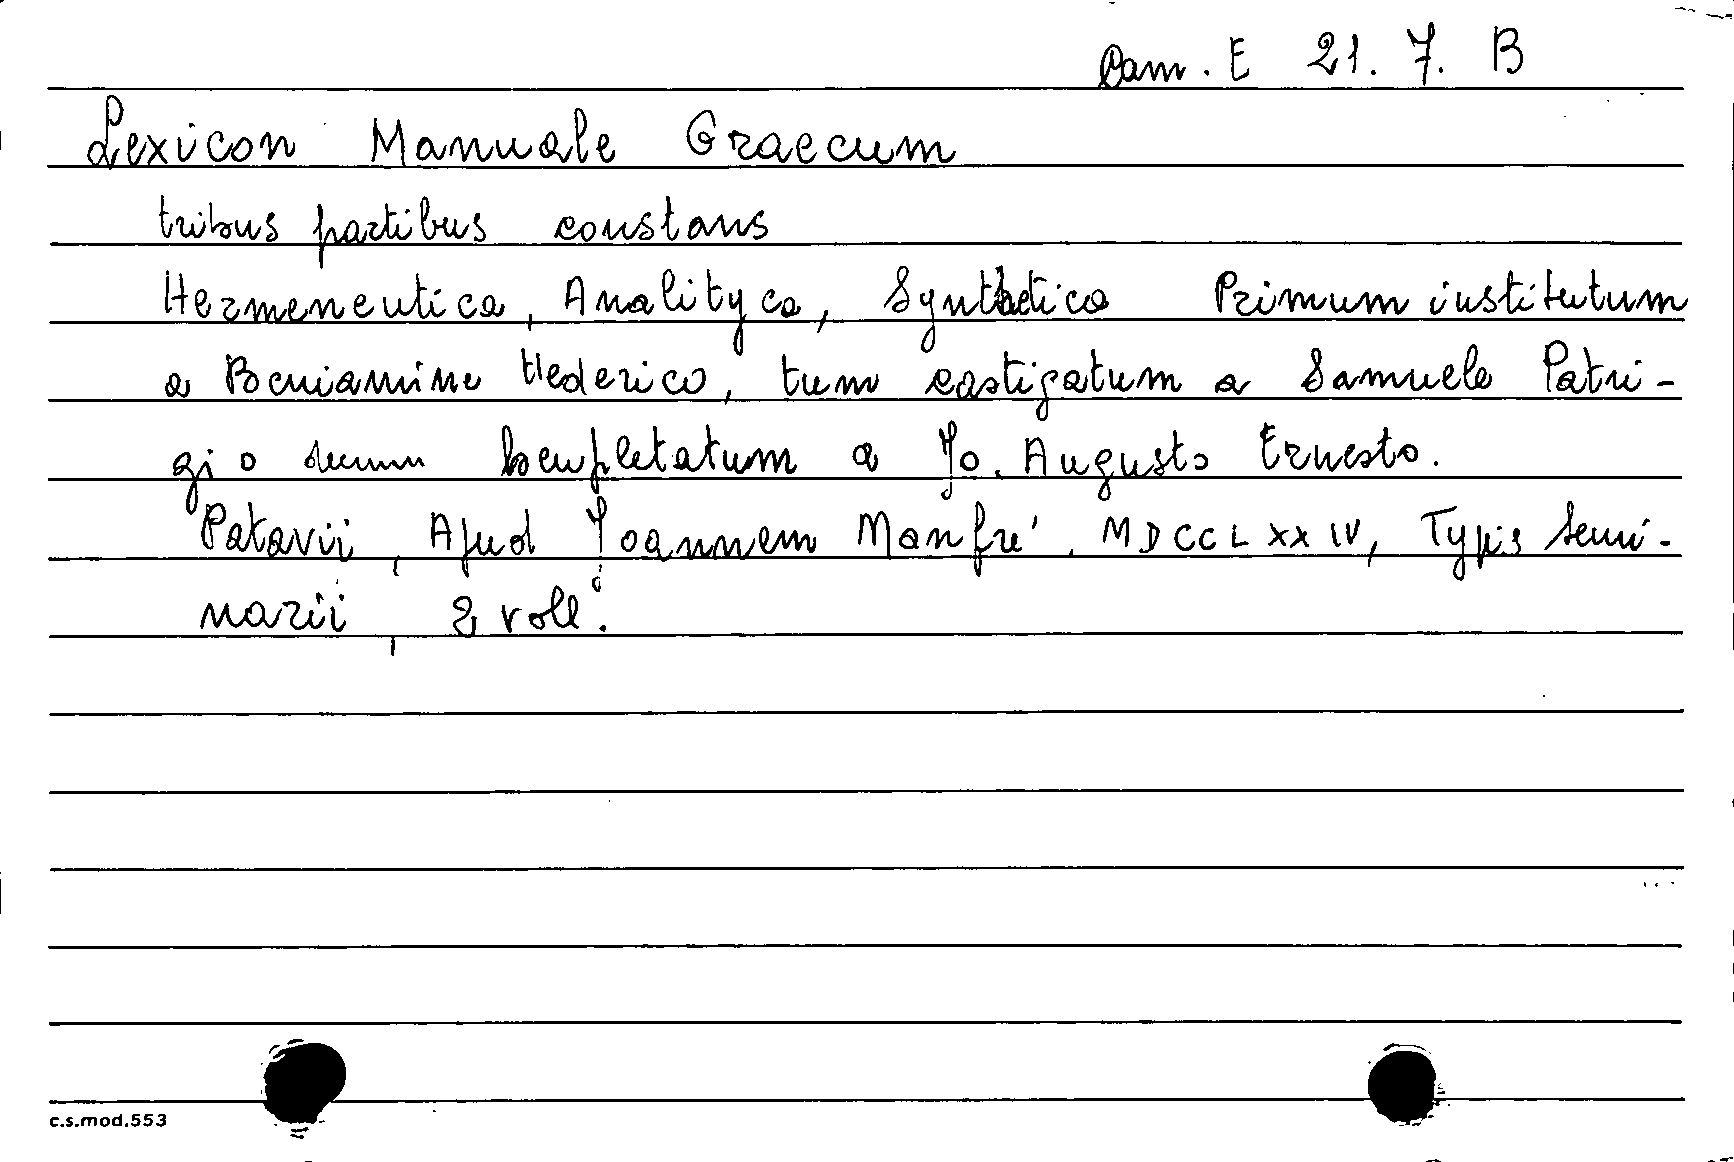 Dam. E 21. 7. B
Lexicon Manuale Graecum
tribus partibus constans
Hermeneutica, Analityca, Synthetica Primum institutum
a Beniamine Hederico, tum castigatum a Samuele Patri-
gio locupletatum a Jo. Augusto Ernesto.
Patavii, Apud Joannem Manfré, MDCCLXXIV, Typis Semi-
narii, 2 voll.
c.s.mod.553